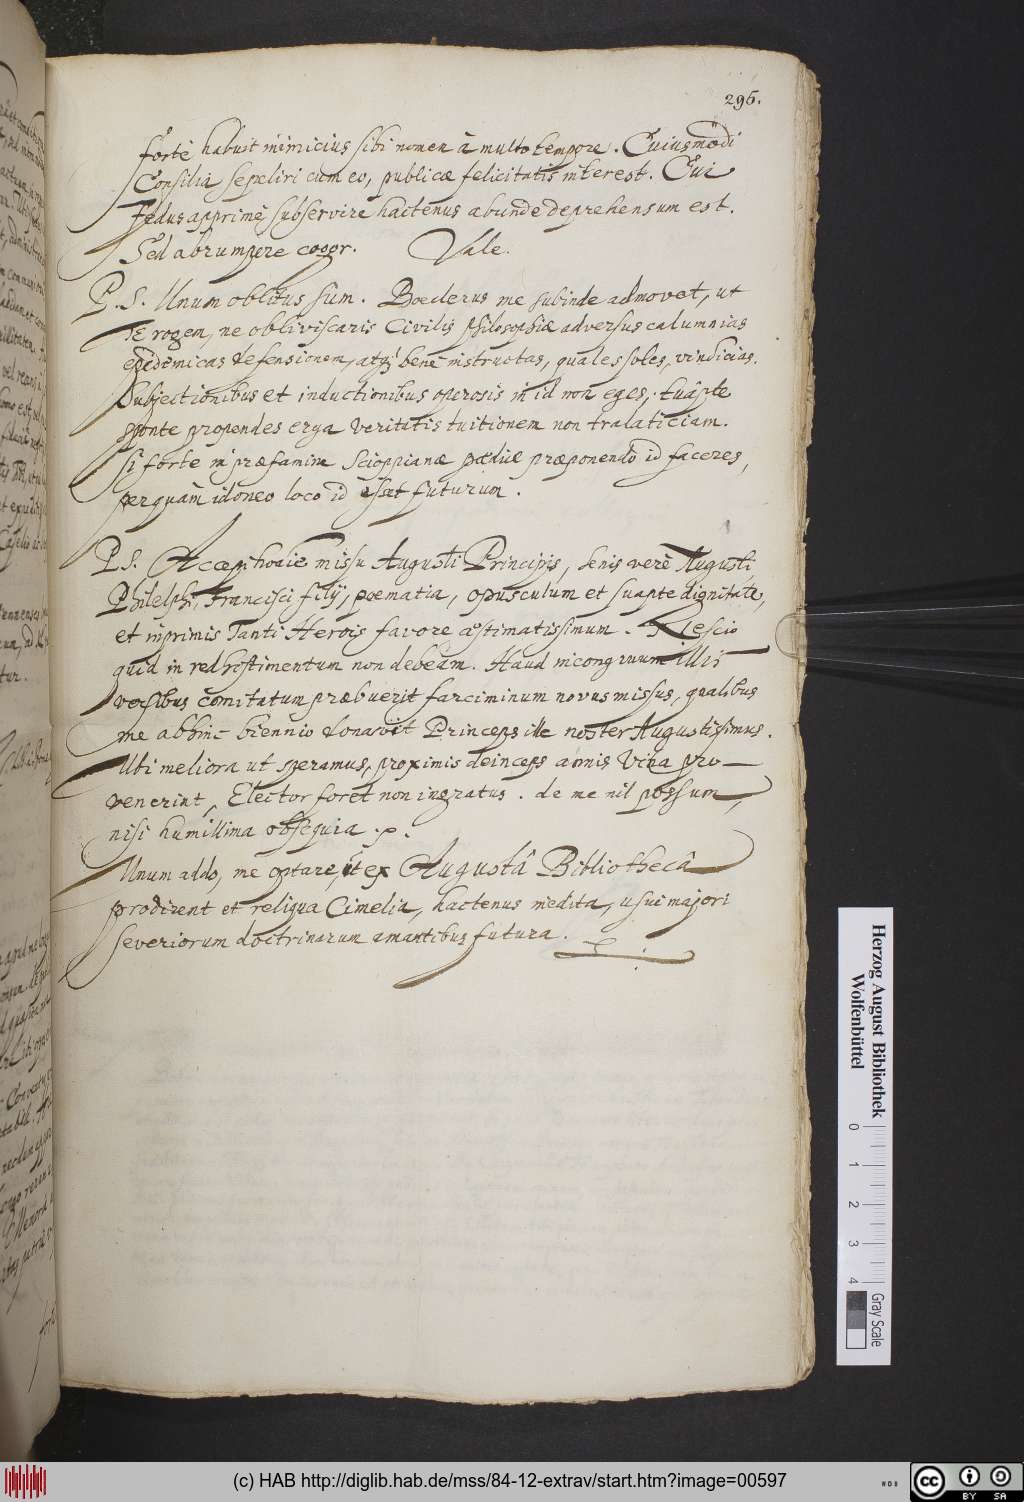 295.
forte habuit inimicius sibi nomen à multo tempore. Cuiusmodi
Consilia sepeliri cum eo, publicæ felicitatis interest. Cui
fedus apprimè subservire hactenus abunde deprehensum est.
Sed abrumpere cogor. Vale.
P. S. Unum oblitus sum. Boeclerus me subinde admovet, ut
Te rogem, ne obliviscaris Civilis philosophiæ adversus calumnias
epidemicas defensionem, atq; bene instructas, quales soles, vindicias.
Subjectionibus et inductionibus operosis in id non eges, tuâpte
sponte propendes erga veritatis tuitionem non tralaticiam.
Si forte in præfamine Scioppianæ pædiæ præponendo id faceres,
perquàm idoneo loco id esset futurum.
P. S. Accepi hodie missu Augusti Principis, senis verè Augusti
Philelphi, Francisci filij, poematia, opusculum et suapte dignitate,
et inprimis Tanti Herois favore æstimatissimum. Nescio
quid in redhostimentum non debeam. Haud incongruum illis
versibus comitatum præbuerit farciminum novus missus, qualibus
me abhinc biennio donavit Princeps ille noster Augustissimus.
Ubi meliora ut speramus, proximis deinceps annis Vina pro-
venerint, Elector foret non ingratus. de me nil possum,
nisi humillima obsequia. p.
Unum addo, me optare, ut ex Augustâ Bibliothecâ
prodirent et reliqua Cimelia, hactenus inedita, usui majori
severiorum doctrinarum amantibus futura.
Herzog August Bibliothek
Wolfenbüttel
0 1 2 3 4
Gray Scale
(c) HAB http://diglib.hab.de/mss/84-12-extrav/start.htm?image=00597
cc BY SA